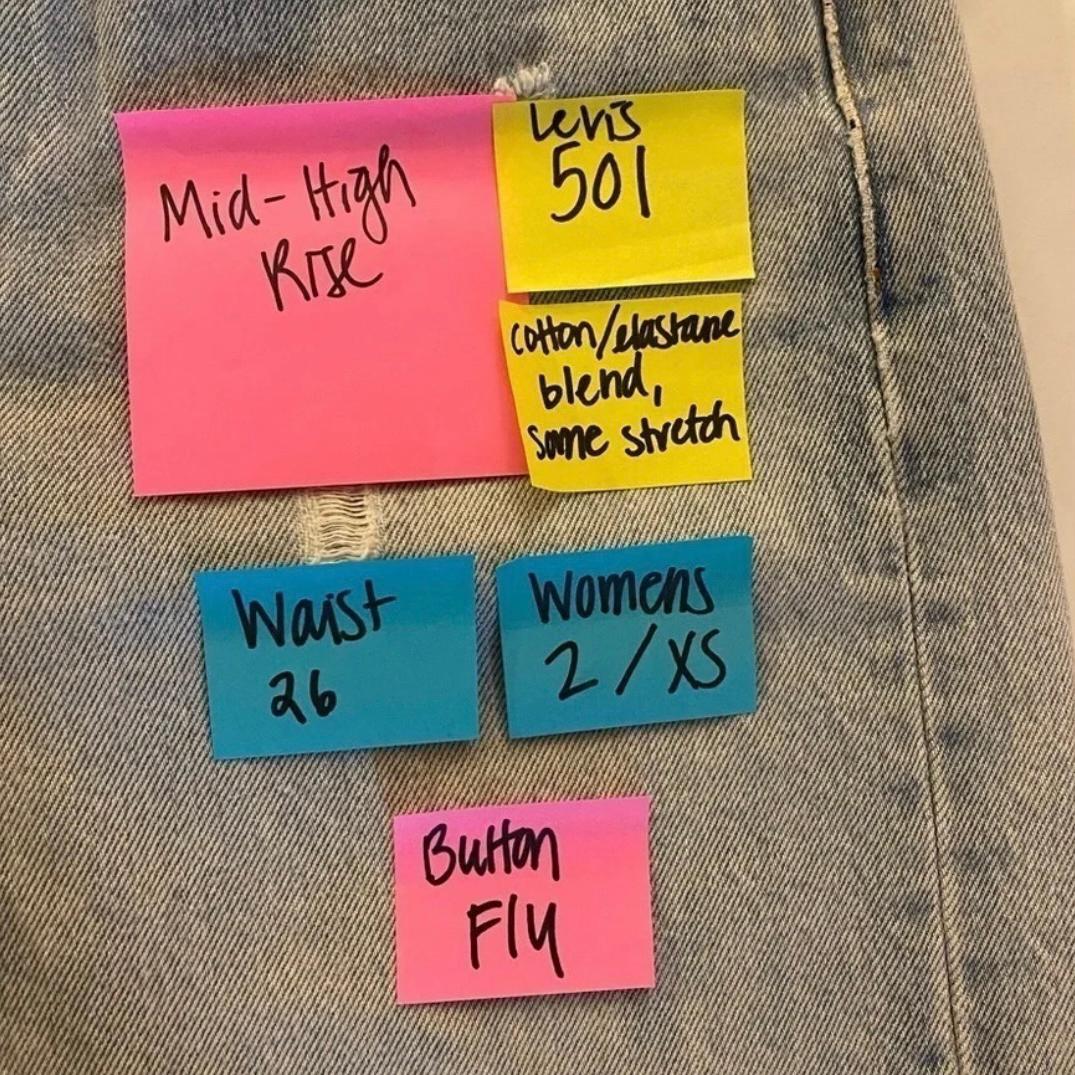 Mid-High
Rise
Levis
501
cotton/elastane
blend,
some stretch
Waist
26
Womens
2/XS
Button
Fly